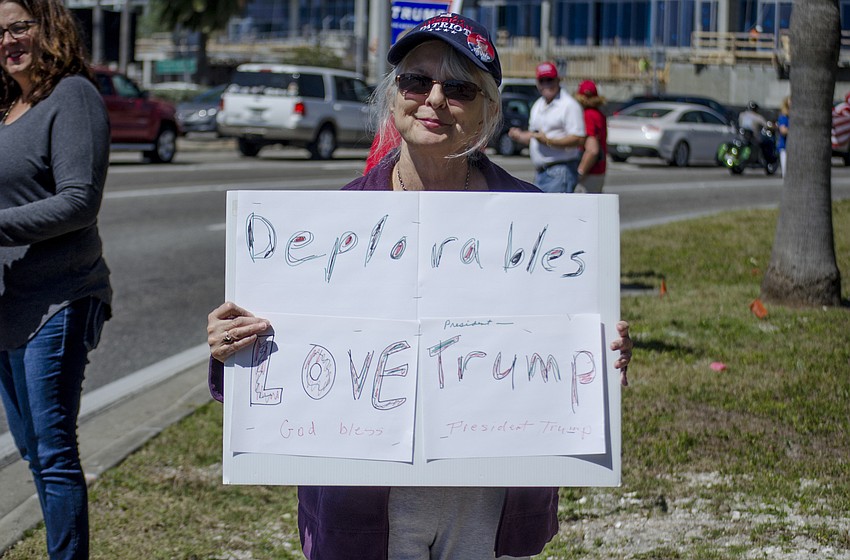 TRUMP
PATRIOT
Deplorables
President
LOVE Trump
God bless President Trump